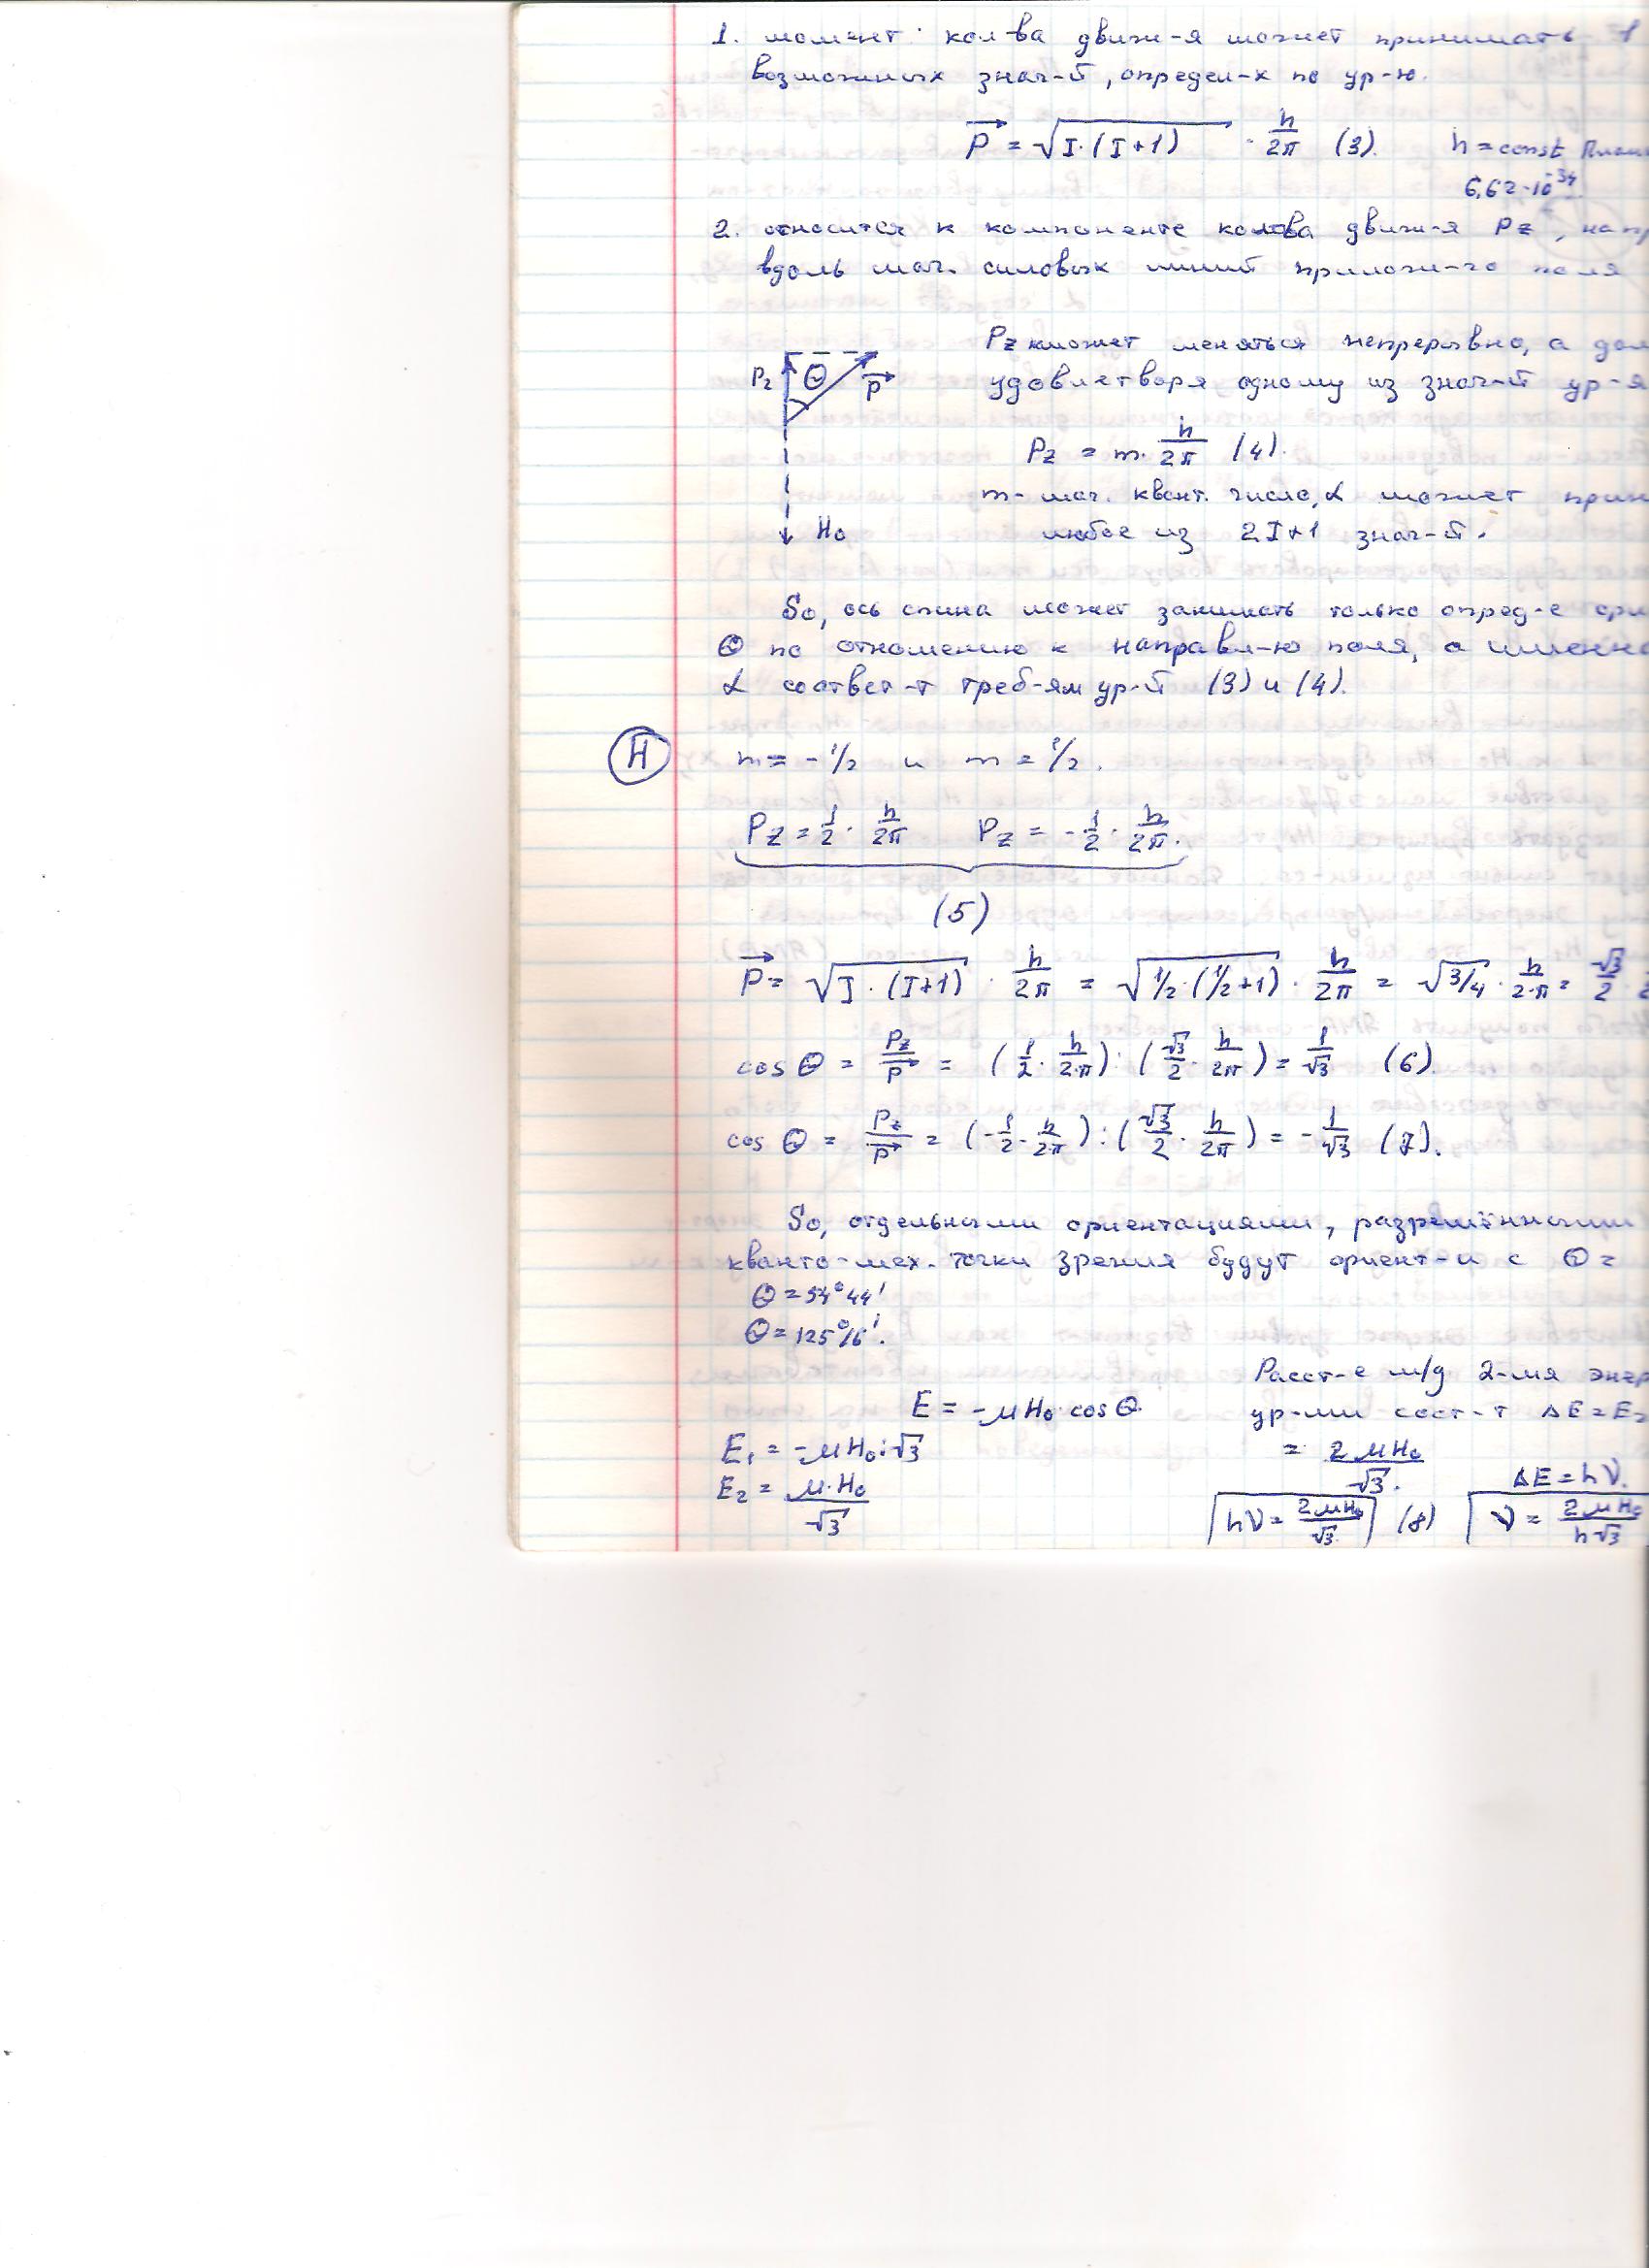 1. момент кол-ва движ-я может принимать 1
возможных знач-й, определ-х по ур-ю.
P = √I·(I+1) · h/2π (3). h = const План
6,62·10⁻³⁴
2. относится к компоненте кол-ва движ-я Pz, напр
вдоль маг. силовых линий прилож-го поля
Pz может меняться непрерывно, а дол
Pz Θ p
удовлетворя одному из знач-й ур-я
Pz = m · h/2π (4).
m - маг. квант. число, α может прин
H₀
любое из 2I+1 знач-й.
So, ось спина может занимать только опред-е ори
Θ по отношению к направл-ю поля, а именно
α соответ-т треб-ям ур-й (3) и (4).
H m = -1/2 и m = 1/2.
Pz = 1/2 · h/2π Pz = -1/2 · h/2π.
(5)
P = √I·(I+1) · h/2π = √1/2·(1/2+1) · h/2π = √3/4 · h/2·π = √3/2 ·
cos Θ = Pz/p = (1/2 · h/2·π) : (√3/2 · h/2π) = 1/√3 (6).
cos Θ = Pz/p = (-1/2 · h/2π) : (√3/2 · h/2π) = -1/√3 (7).
So, отдельными ориентациями, разрешёнными
кванто-мех. точки зрения будут ориент-и с Θ =
Θ = 54°44'
Θ = 125°16'.
Расст-е м/д 2-мя энер
E = -μH₀·cos Θ.
ур-ми сост-т ΔE = E₂
E₁ = -μH₀:√3
= 2μH₀/√3.
E₂ = μ·H₀/√3
ΔE = hν.
hν = 2μH₀/√3 (8) ν = 2μH₀/h√3